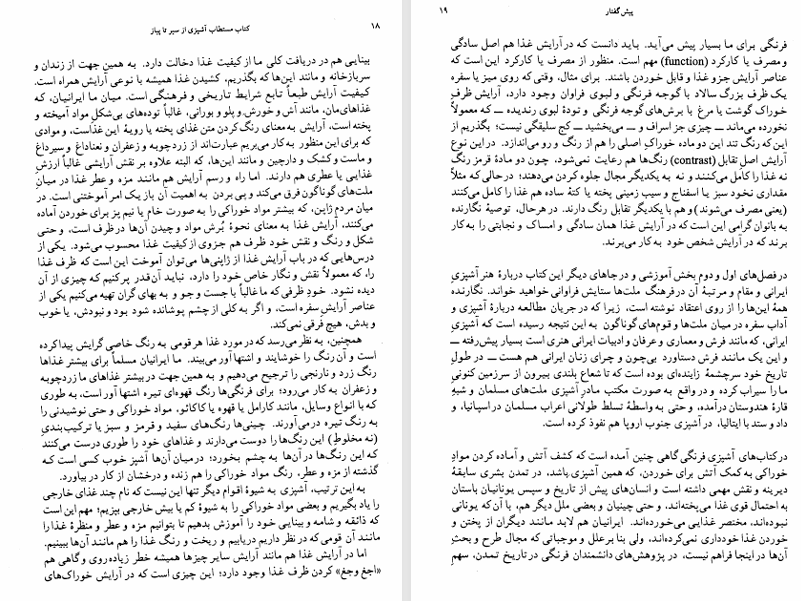 ۱۸ کتاب مستطاب آشپزی از سیر تا پیاز
بینایی هم در دریافت کلی ما از کیفیت غذا دخالت دارد. به همین جهت از زندان و
سربازخانه و مانند این‌ها که بگذریم، کشیدن غذا همیشه با نوعی آرایش همراه است.
کیفیت آرایش طبعاً تابع شرایط تاریخی و فرهنگی است. میان ما ایرانیان، که
غذاهای‌مان، مانند آش و خورش و پلو و بورانی، غالباً توده‌های بی‌شکل مواد آمیخته و
پخته است، آرایش به معنای رنگ کردن متن غذای پخته یا رویهٔ این غذاست، و موادی
که برای این منظور به کار می‌بریم عبارت‌اند از زردچوبه و زعفران و نعناداغ و سیرداغ
و ماست و کشک و دارچین و مانند این‌ها، که البته علاوه بر نقش آرایشی غالباً ارزش
غذایی یا عطری هم دارند. اما راه و رسم آرایش هم مانند مزه و عطر غذا در میان
ملت‌های گوناگون فرق می‌کند و پی بردن به اهمیت آن باز یک امر آموختنی است. در
میان مردم ژاپن، که بیشتر مواد خوراکی را به صورت خام یا نیم پز برای خوردن آماده
می‌کنند، آرایش غذا به معنای نحوهٔ بُرش مواد و چیدن آن‌ها در ظرف است، و حتی
شکل و رنگ و نقش خود ظرف هم جزوی از کیفیت غذا محسوب می‌شود. یکی از
درس‌هایی که در باب آرایش غذا از ژاپنی‌ها می‌توان آموخت این است که ظرف غذا
را، که معمولاً نقش و نگار خاص خود را دارد، نباید آن‌قدر پر کنیم که چیزی از آن
دیده نشود. خودِ ظرفی که ما غالباً با جست و جو و به بهای گران تهیه می‌کنیم یکی از
عناصر آرایش سفره است، و اگر به کلی از چشم پوشانده شود بود و نبودش، یا خوب
و بدش، هیچ فرقی نمی‌کند.
همچنین، به نظر می‌رسد که در مورد غذا هر قومی به رنگ خاصی گرایش پیدا کرده
است و آن رنگ را خوشایند و اشتهاآور می‌بیند. ما ایرانیان مسلماً برای بیشتر غذاها
رنگ زرد و نارنجی را ترجیح می‌دهیم و به همین جهت در بیشتر غذاهای ما زردچوبه
و زعفران به کار می‌رود؛ برای فرنگی‌ها رنگ قهوه‌ای تیره اشتهاآور است، به طوری
که با انواع وسایل، مانند کارامل یا قهوه یا کاکائو، مواد خوراکی و حتی نوشیدنی را
به رنگ تیره در می‌آورند. چینی‌ها رنگ‌های سفید و قرمز و سبز یا ترکیب‌بندی
(نه مخلوط) این رنگ‌ها را دوست می‌دارند و غذاهای خود را طوری درست می‌کنند
که این رنگ‌ها در آن‌ها به چشم بخورد؛ در میان آن‌ها آشپز خوب کسی است که
گذشته از مزه و عطر، رنگ مواد خوراکی را هم زنده و درخشان از کار در بیاورد.
به این ترتیب، آشپزی به شیوهٔ اقوام دیگر تنها این نیست که نام چند غذای خارجی
را یاد بگیریم و بعضی مواد خوراکی را به شیوهٔ کم یا بیش خارجی بپزیم؛ مهم این است
که ذائقه و شامه و بینایی خود را آموزش بدهیم تا بتوانیم مزه و عطر و منظرهٔ غذا را
مانند آن قومی که در نظر داریم دریابیم و ریخت و رنگ غذا را هم مانند آن‌ها ببینیم.
اما در آرایش غذا هم مانند آرایش سایر چیزها همیشه خطر زیاده‌روی و گاهی هم
«اجغ وجغ» کردن ظرف غذا وجود دارد؛ این چیزی است که در آرایش خوراک‌های
پیش‌گفتار ۱۹
فرنگی برای ما بسیار پیش می‌آید. باید دانست که در آرایش غذا هم اصل سادگی
و مصرف یا کارکرد (function) مهم است. منظور از مصرف یا کارکرد این است که
عناصر آرایش جزو غذا و قابل خوردن باشند. برای مثال، وقتی که روی میز یا سفره
یک ظرف بزرگ سالاد با گوجه فرنگی و لبوی فراوان وجود دارد، آرایش ظرفِ
خوراک گوشت یا مرغ با برش‌های گوجه فرنگی و تودهٔ لبوی رندیده — که معمولاً
نخورده می‌ماند — چیزی جز اسراف و — می‌بخشید — کج سلیقگی نیست؛ بگذریم از
این که رنگ تند این دو ماده خوراک اصلی را هم از رنگ و رو می‌اندازد. در این نوع
آرایش اصل تقابل (contrast) رنگ‌ها هم رعایت نمی‌شود، چون دو مادهٔ قرمز رنگ
نه غذا را کامل می‌کنند و نه به یکدیگر مجال جلوه کردن می‌دهند؛ در حالی که مثلاً
مقداری نخود سبز یا اسفناج و سیب زمینی پخته یا کتهٔ ساده هم غذا را کامل می‌کنند
(یعنی مصرف می‌شوند) و هم با یکدیگر تقابل رنگ دارند. در هر حال، توصیهٔ نگارنده
به بانوان گرامی این است که در آرایش غذا همان سادگی و امساک و نجابتی را به کار
برند که در آرایش شخص خود به کار می‌برند.
در فصل‌های اول و دوم بخش آموزشی و در جاهای دیگر این کتاب دربارهٔ هنر آشپزی
ایرانی و مقام و مرتبهٔ آن در فرهنگ ملت‌ها ستایش فراوانی خواهید خواند. نگارنده
همهٔ این‌ها را از روی اعتقاد نوشته است، زیرا که در جریان مطالعه دربارهٔ آشپزی و
آداب سفره در میان ملت‌ها و قوم‌های گوناگون به این نتیجه رسیده است که آشپزی
ایرانی، که مانند فرش و معماری و عرفان و ادبیات ایرانی هنری است بسیار پیش‌رفته —
و این یک مانند فرش دستاورد بی‌چون و چرای زنان ایرانی هم هست — در طول
تاریخ خود سرچشمهٔ زاینده‌ای بوده است که تا شعاع بلندی بیرون از سرزمین کنونی
ما را سیراب کرده و در واقع به صورت مکتب مادرِ آشپزی ملت‌های مسلمان و شبهِ
قارهٔ هندوستان درآمده، و حتی به واسطهٔ تسلط طولانی اعراب مسلمان در اسپانیا، و
داد و ستد با ایتالیا، در آشپزی جنوب اروپا هم نفوذ کرده است.
در کتاب‌های آشپزی فرنگی گاهی چنین آمده است که کشف آتش و آماده کردن موادِ
خوراکی به کمک آتش برای خوردن، که همین آشپزی باشد، در تمدن بشری سابقهٔ
دیرینه و نقش مهمی داشته است و انسان‌های پیش از تاریخ و سپس یونانیان باستان
به احتمال قوی غذا می‌پخته‌اند، و حتی چینیان و بعضی ملل دیگر هم، با آن که یونانی
نبوده‌اند، مختصر غذایی می‌خورده‌اند. ایرانیان هم لابد مانند دیگران از پختن و
خوردن غذا خودداری نمی‌کرده‌اند، ولی بنا بر علل و موجباتی که مجال طرح و بحثِ
آن‌ها در اینجا فراهم نیست، در پژوهش‌های دانشمندان فرنگی در تاریخ تمدن، سهمِ